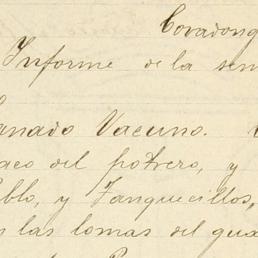 Covadong
Informe de la sem
Ganado Vacuno.
aco del potrero, y
blo, y Tanquecillos,
s las lomas del gua